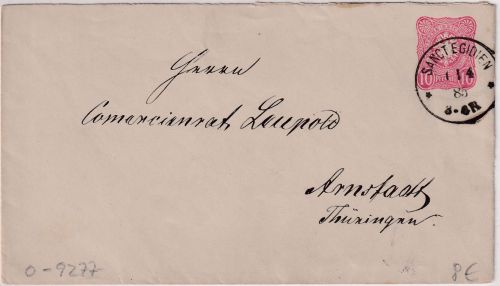 SANCT EGIDIEN
1 4
85
3-4N
10 10
Herrn
Comercienrat Leupold
Arnstadt
Thüringen.
0-9277
8€